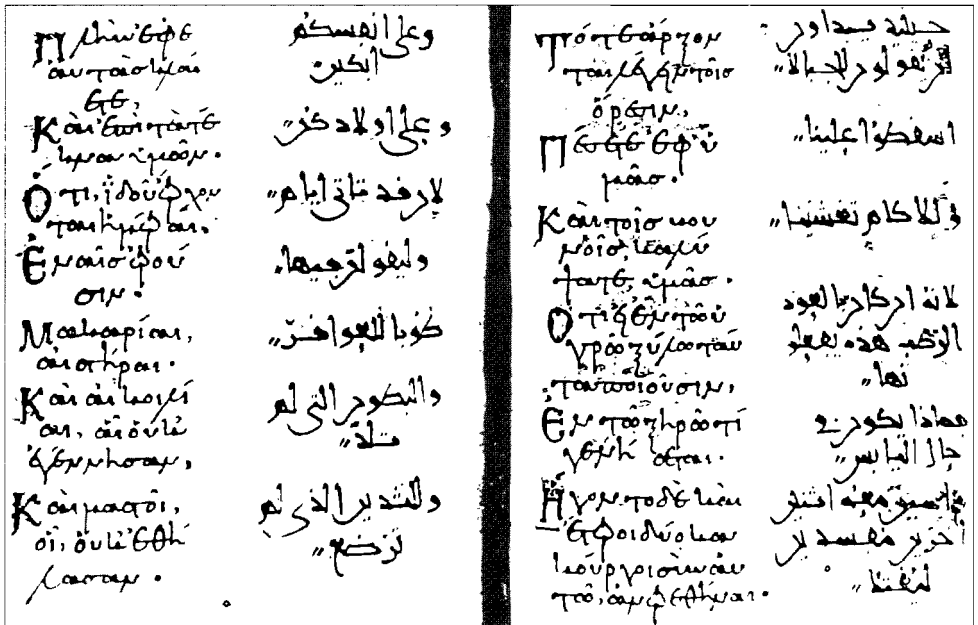 Πλὴν ἐφ ἑ
αυτὰσ κλαί
ετε,
Καὶ ἐπὶ τὰ τέ
κνα ὑμῶν.
Ὅτι, ἰδοὺ ἔρχον
ται ἡμέραι,
Ἐν αἷσ ἐροῦ
σιν.
Μακαρίαι,
αι στῆραι.
Καὶ αἱ κοιλί
αι, αἳ οὐκ
ἐγέννησαν,
Καὶ μαστοί,
οἵ, οὐκ ἐθή
λασαν.
وعلى انفسكن
ابكين
وعلى اولادكن
لان قد تاتي ايام
وليقولن فيها
طوبا للعواقر
والبطون التي لم
تلد
والثدين الذي لم
ترضع
Τότε ἄρξον
ται λέγειν τοῖσ
ὄρεσιν,
Πέσετε ἐφ ὑ
μᾶσ.
Καὶ τοῖσ βου
νοῖσ, καλύ
ψατε, ὑμᾶσ.
Ὅτι εἰ ἐν τῶ ὑ
γρῶ ξύλω ταῦ
τα ποιοῦσιν,
Ἐν τῶ ξηρῶ τί
γένηται.
Ἤγοντο δὲ καὶ
ἕτεροι δύο κα
κοῦργοι σὺν αὐ
τῶ, ἀναιρεθῆναι.
حينئذ يبداون
ان يقولون للجبال
اسقطوا علينا
وللاكام تغشينا
لانه ان كان بالعود
الرطب هذه يفعلو
نها
فماذا يكون في
حال اليابس
معه اثنين
اخرين مفسدين
ليقتلا